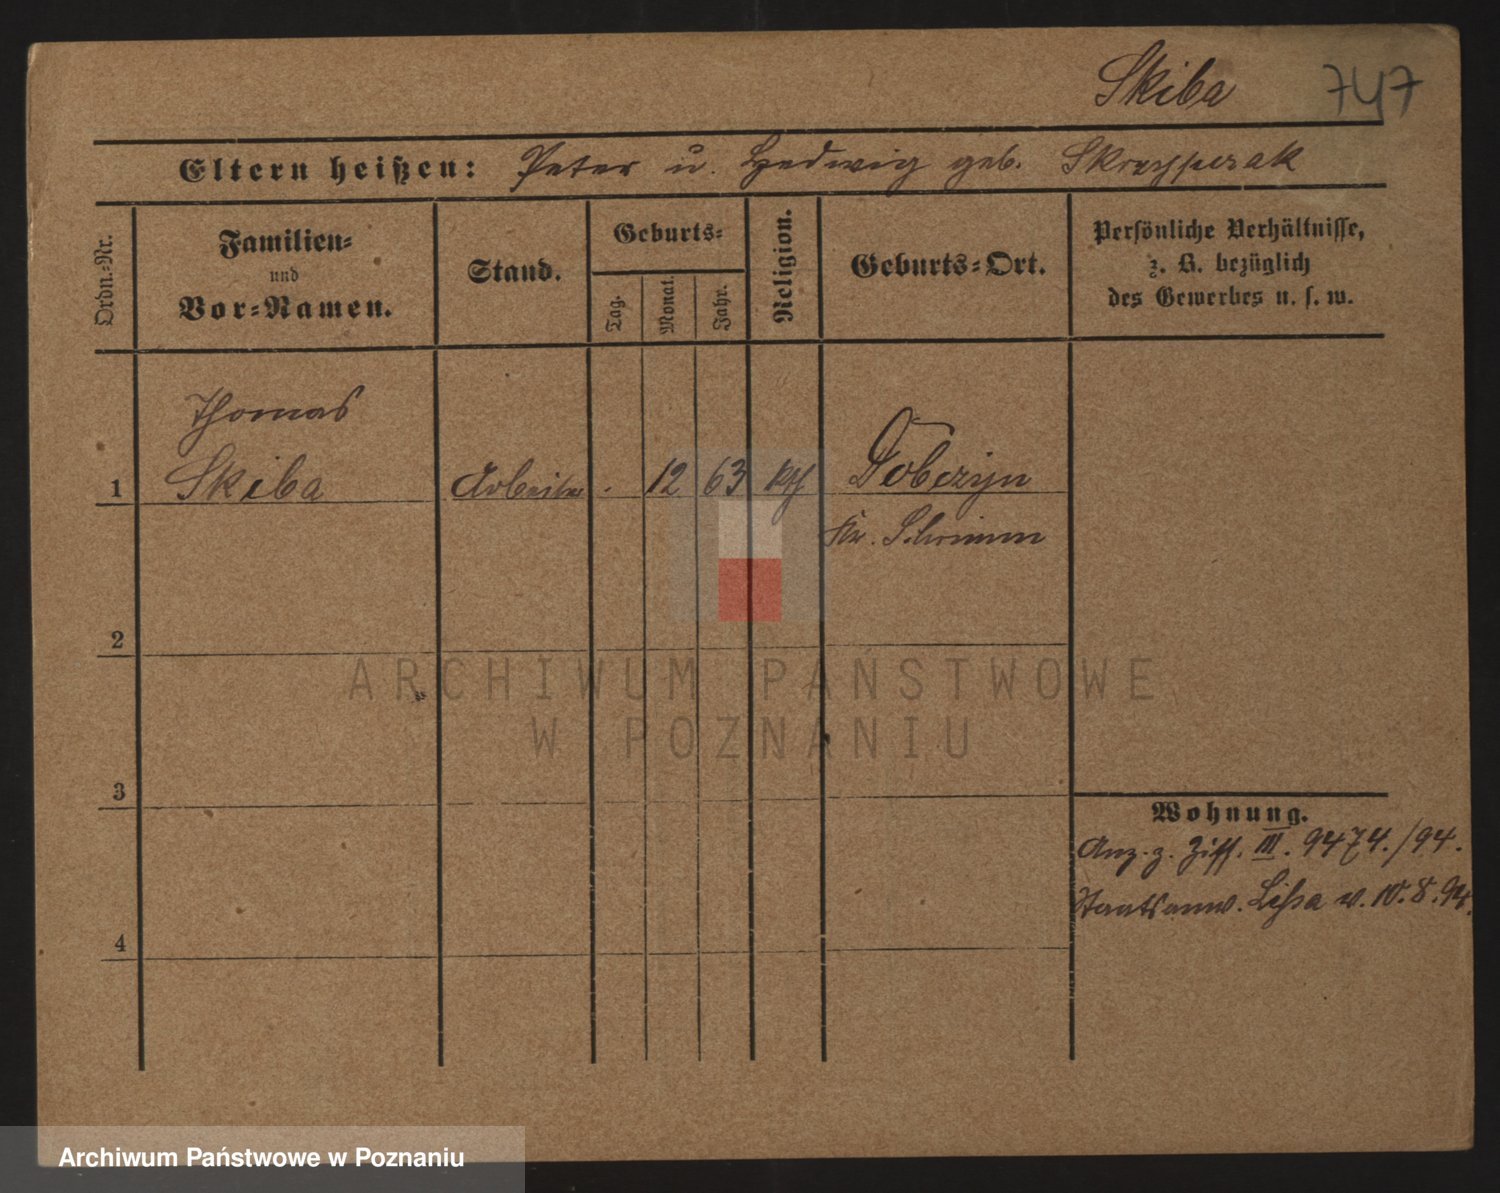 Skiba 747
Eltern heißen: Peter u. Hedwig geb.
Ordn.-Nr.
Familien-
und
Vor-Namen.
Stand.
Geburts-
Tag.
Monat.
Jahr.
Religion.
Geburts-Ort.
Persönliche Verhältnisse,
z. B. bezüglich
des Gewerbes u. s. w.
Thomas
1 Skiba Arbeiter 12 63 kath Dobczyn
Kr. Schrimm
2
3
4
Wohnung.
Anz. z. Ziff. III. 9474./94.
Staatsanw. Lissa v. 10.8.94.
ARCHIWUM PAŃSTWOWE
W POZNANIU
Archiwum Państwowe w Poznaniu